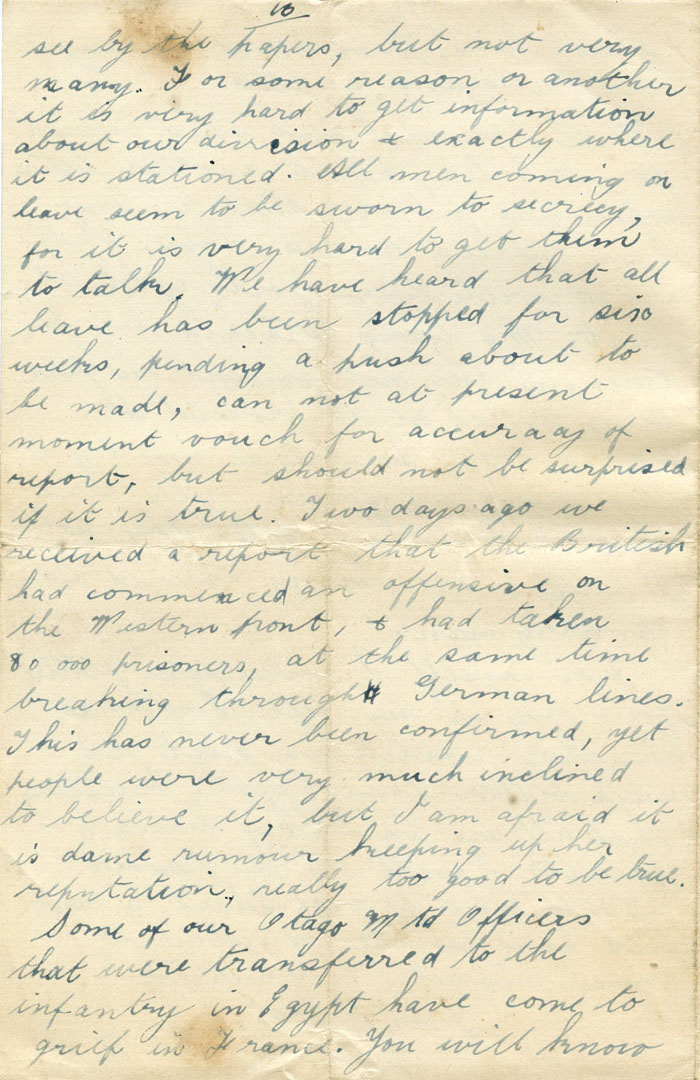 10
see by the papers, but not very
many. For some reason or another
it is very hard to get information
about our division & exactly where
it is stationed. All men coming on
leave seem to be sworn to secrecy,
for it is very hard to get them
to talk. We have heard that all
leave has been stopped for six
weeks, pending a push about to
be made, can not at present
moment vouch for accuracy of
report, but should not be surprised
if it is true. Two days ago we
received a report that the British
had commenced an offensive on
the Western front, & had taken
80 000 prisoners, at the same time
breaking through German lines.
This has never been confirmed, yet
people were very much inclined
to believe it, but I am afraid it
is dame rumour keeping up her
reputation, really too good to be true.
Some of our Otago Mtd Officers
that were transferred to the
infantry in Egypt have come to
grief in France. You will know